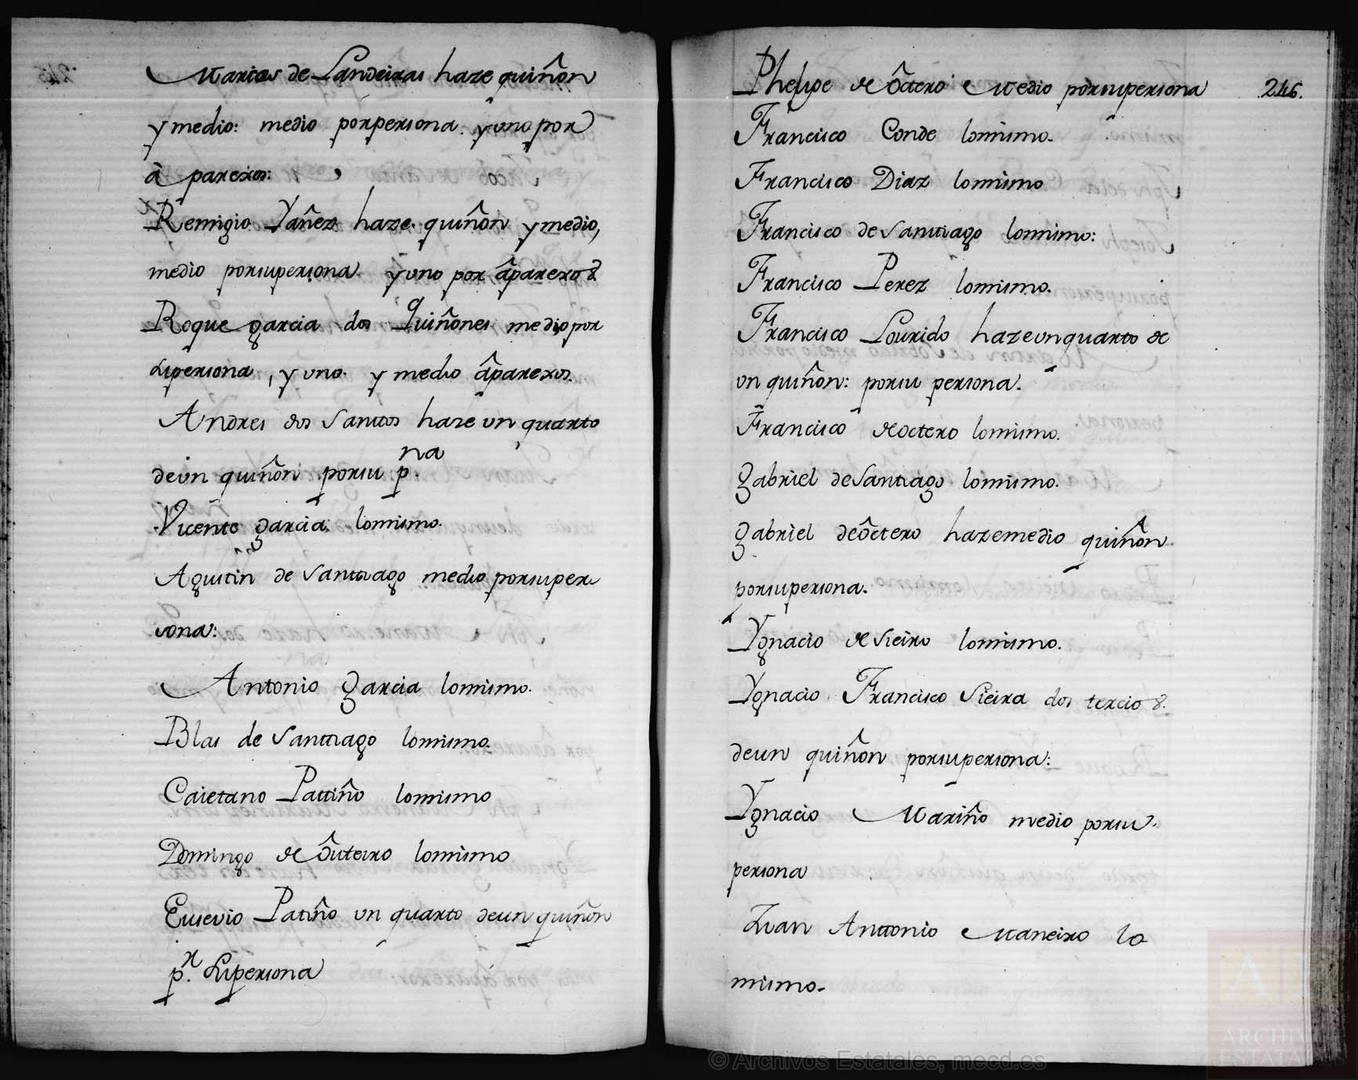 Matias de Landeiras haze quiñon
y medio: medio por persona. y uno por
aparexos:
Remigio Yañez haze quiñon y medio,
medio porsupersona y uno por aparexos
Roque garcia dos Quiñones medio por
supersona, y uno y medio aparexos.
Andres dos Santos haze un quarto
deun quiñon porsu pna
Vicente garcia lomismo.
Agustin de Santtiago medio porsuper
sona:
Antonio garcia lomismo.
Blas de Santtiago lomismo.
Caietano Pattiño lomismo
Domingo de Outeiro lomismo
Eusevio Patiño un quarto deun quiñon
pr. supersona
Phelipe de Octero Medio porsupersona 246.
Francisco Conde lomismo.
Francisco Diaz lomismo
Francisco de Santiago lomismo:
Francisco Perez lomismo.
Francisco Lourido haze un quarto de
un quiñon: porsu persona.
Francisco de octero lomismo.
gabriel de Santiago lomismo.
gabriel de Octero haze medio quiñon
porsupersona.
Ygnacio de Sieiro lomismo.
Ygnacio Francisco Sieira dos tercios
deun quiñon porsupersona:
Ygnacio Mariño medio porsu
persona
Juan Anttonio Maneiro lo
mismo.
© Archivos Estatales, mecd.es
ARCHIVOS
ESTATALES